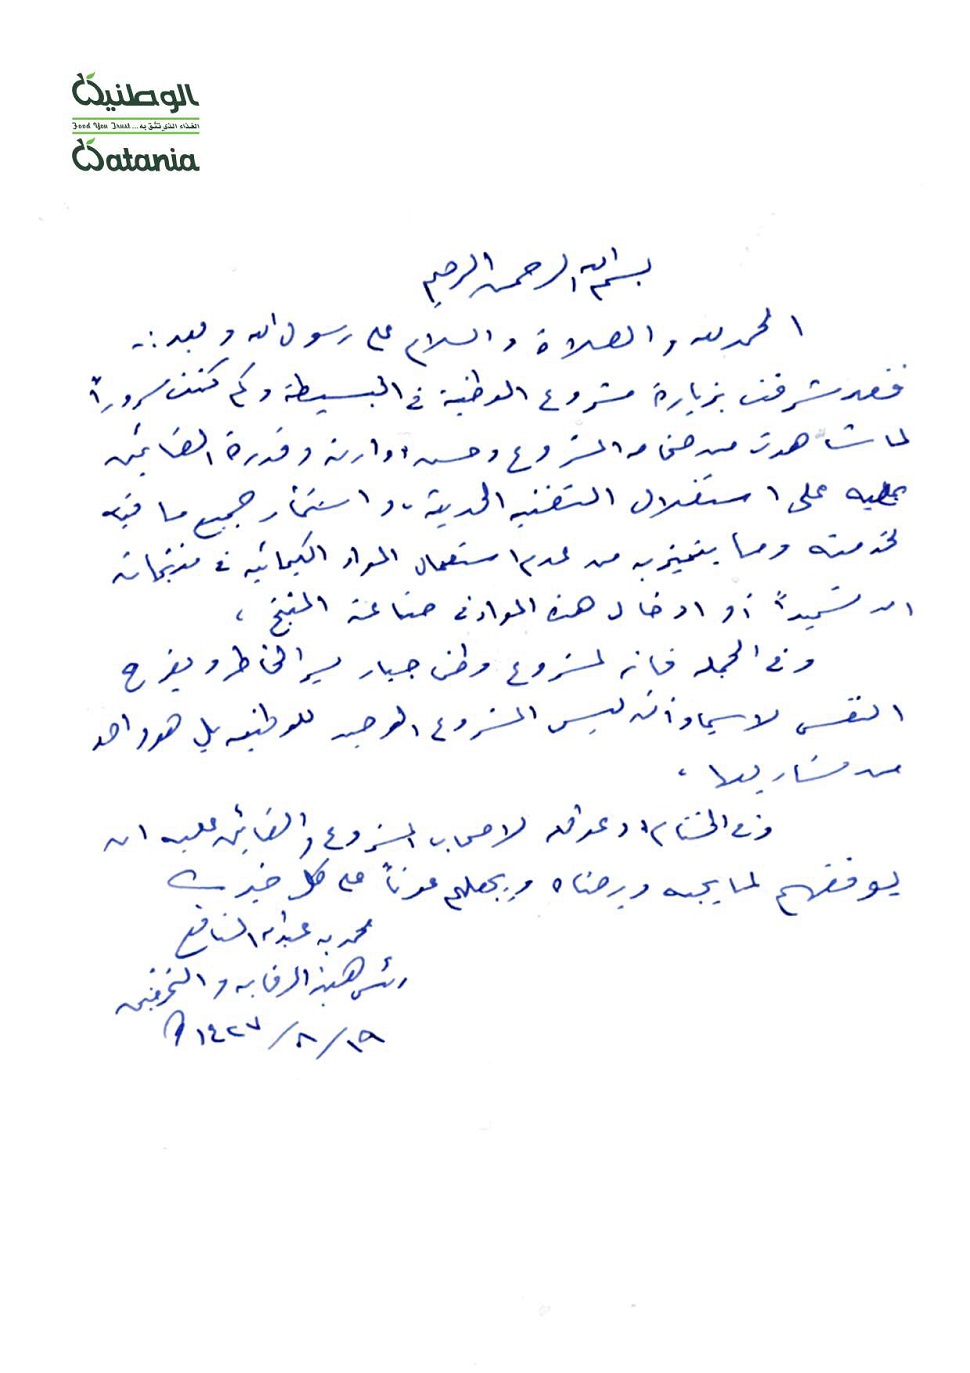 الوطنية
Food You Trust... الغذاء الذي تثق به
Watania
بسم الله الرحمن الرحيم
الحمد لله والصلاة والسلام على رسول الله وبعد :.
فقد تشرفت بزيارة مشروع الوطنية في البسيطة وكم كنت سروراً
لما شاهدت من ضخامة المشروع وحسن ادارته وقدرة القائمين
عليه على استغلال التقنيه الحديثة، واستثمار جميع ما فيه
لخدمته وما يتميز به من عدم استعمال المواد الكيمائيه في منتجاته
أو ادخال هذه المواد في صناعة المنتج ،
وفي الجمله فانه لمشروع وطني جبار يسر الخاطر ويفرح
النفس لاسيما وأنه ليس المشروع الوحيد للوطنيه بل هو واحد
من مشاريعها ،
وفي الختام ادعو الله لاصحاب المشروع والقائمين عليه ان
يوفقهم لما يحبه ويرضاه ويجعلهم عوناً على كل خير
محمد بن عبدالله النافع
رئيس هيئة الرقابه والتحقيق
١٤٢٧/٨/١٩